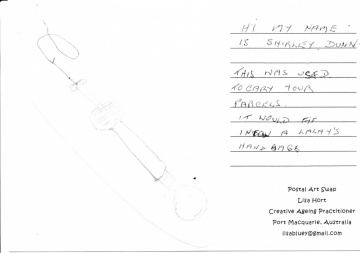 HI MY NAME
IS SHIRLEY DUNN
THIS WAS USED
TO CARY YOUR
PARCELS.
IT WOULD FIT
IN A LADY'S
HAND BAGE
Postal Art Swap
Lisa Hort
Creative Ageing Practitioner
Port Macquarie, Australia
lisabluey@gmail.com